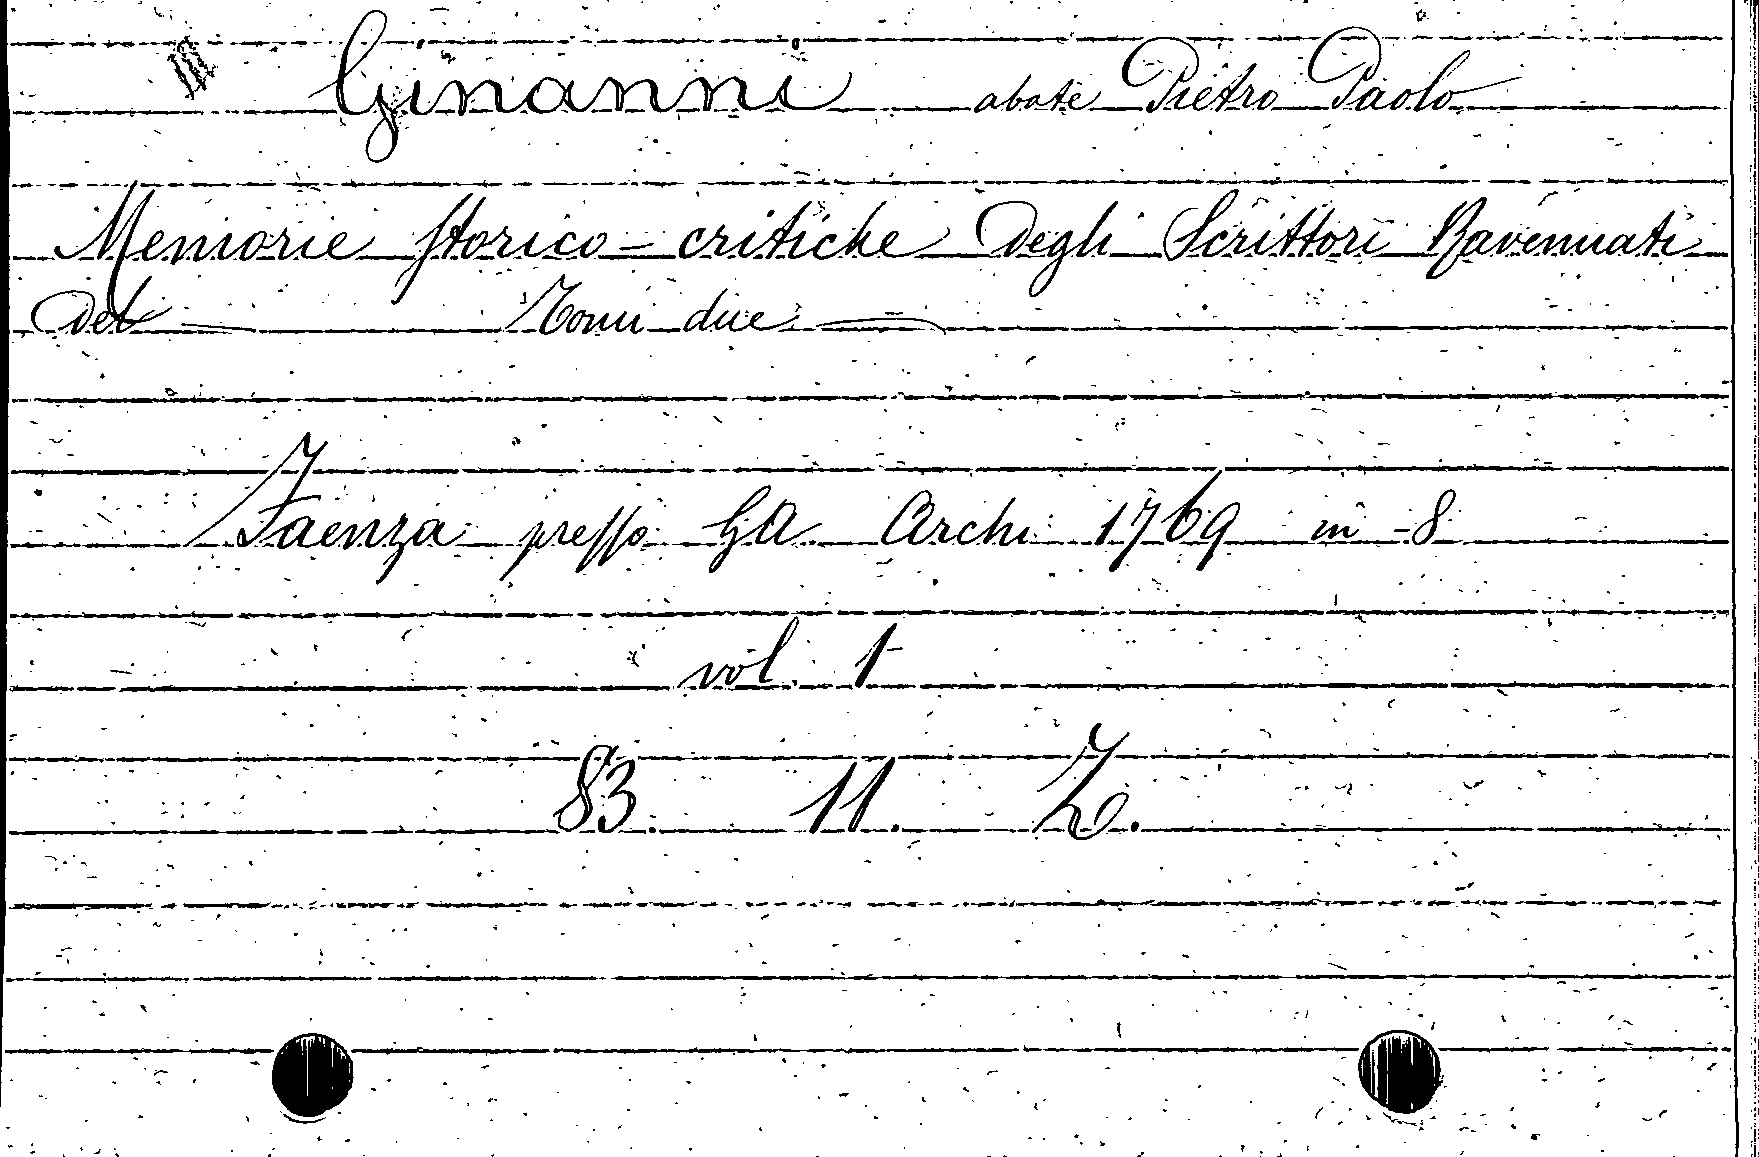 Ginanni abate Pietro Paolo
Memorie storico-critiche degli Scrittori Ravennati
Del Tomi due
Faenza presso G A Archi 1769 in-8
vol. 1
83. 11. Z.